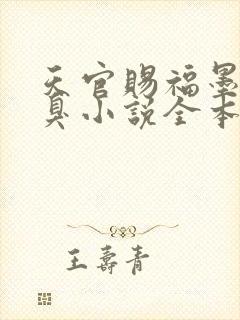 天官赐福墨
臭小说全本
王寿青